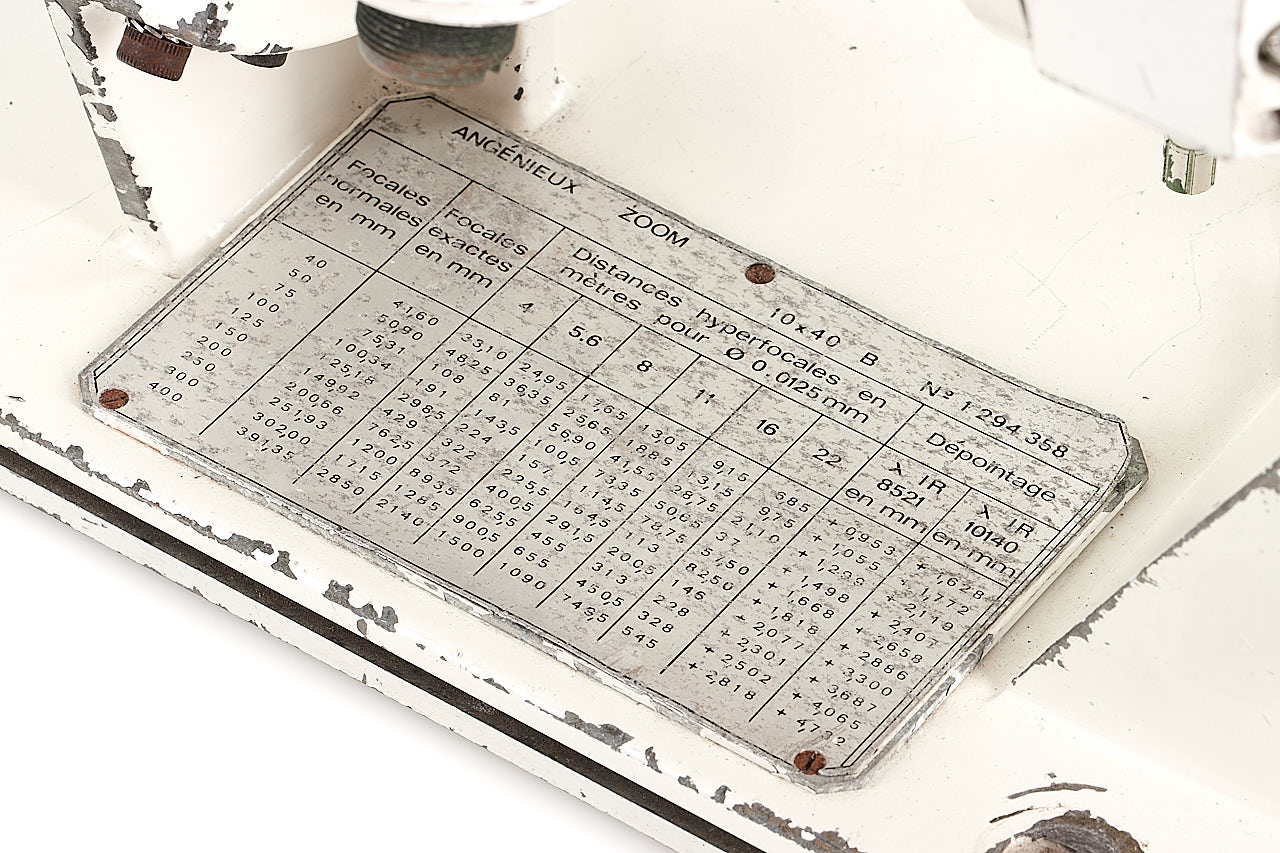 ANGENIEUX ZOOM 10×40 B Nº 1 294 358
Focales normales en mm
Focales exactes en mm
Distances hyperfocales en
mètres pour Ø 0.0125 mm
Dépointage
4 5.6 8 11 16 22
λ IR 8521 en mm
λ IR 10140 en mm
40 41,60 33,10 24,95 17,65 13,05 9,15 6,85 + 0,953 + 1,628
50 50,90 48,25 36,35 25,65 18,85 13,15 9,75 + 1,055 + 1,772
75 75,31 108 81 56,90 41,55 28,75 21,10 + 1,299 + 2,119
100 100,34 191 143,5 100,5 73,35 50,65 37 + 1,498 + 2,407
125 125,18 298,5 224 157 114,5 78,75 57,50 + 1,668 + 2,658
150 149,92 429 322 225,5 164,5 113 82,50 + 1,818 + 2,886
200 200,66 762,5 572 400,5 291,5 200,5 146 + 2,077 + 3,300
250 251,93 1200 893,5 625,5 455 313 228 + 2,301 + 3,687
300 302,00 1715 1285 900,5 655 450,5 328 + 2,502 + 4,065
400 391,35 2850 2140 1500 1090 749,5 545 + 2,818 + 4,732